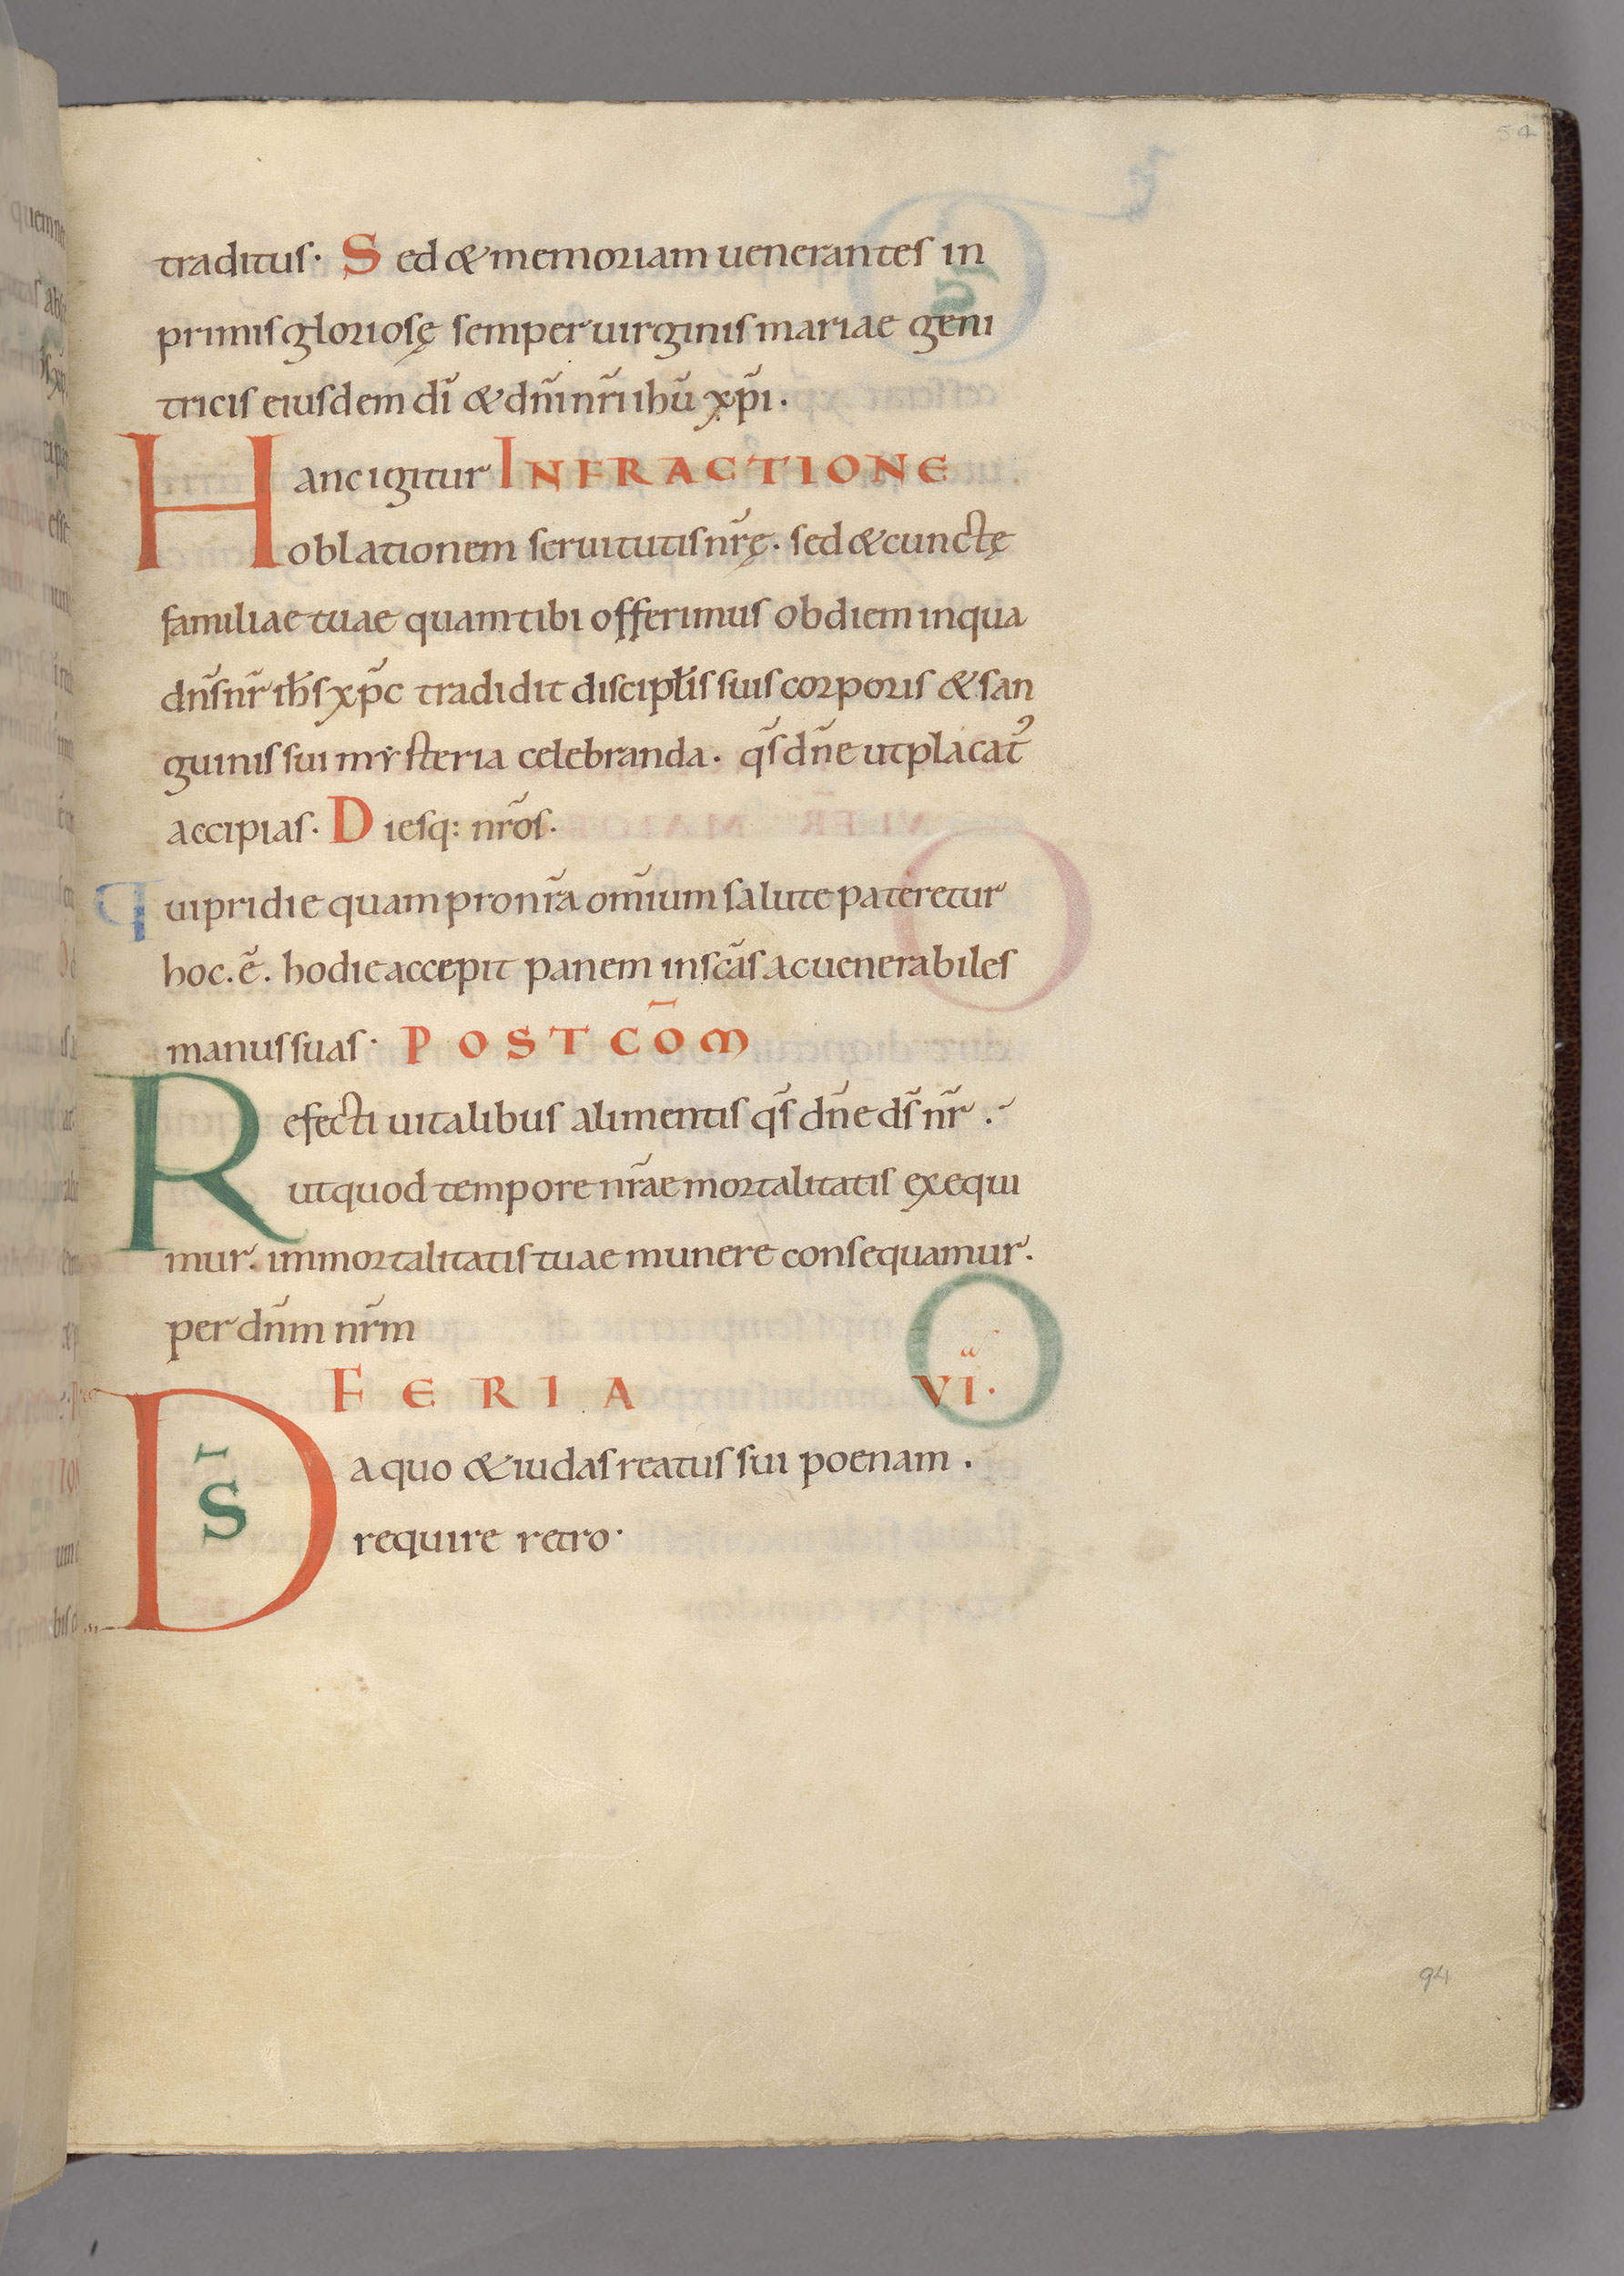 54
traditus. Sed & memoriam uenerantes in
primis gloriosę semper uirginis mariae geni
tricis eiusdem dı̃ & dñi nr̃i ihũ xp̃i.
Hanc igitur INFRACTIONE
oblationem seruitutis nr̃ę. sed & cunctę
familiae tuae quam tibi offerimus ob diem in qua
dñs nr̃ ih̃s xp̃c tradidit discipłis suis corporis & san
guinis sui mẏsteria celebranda. qs̃ dñe ut placatꝰ
accipias. Diesq: nr̃os.
Qui pridie quam pro nr̃a om̃ium salute pateretur
hoc. ẽ. hodie accepit panem in sc̃as ac uenerabiles
manus suas. POST CŌM
Refecti uitalibus alimentis qs̃ dñe ds̃ nr̃.
ut quod tempore nr̃ae mortalitatis exequi
mur. immortalitatis tuae munere consequamur.
per dñm nr̃m
FERIA VI.ᵃ
DS̄ a quo & iudas reatus sui poenam.
require retro.
94